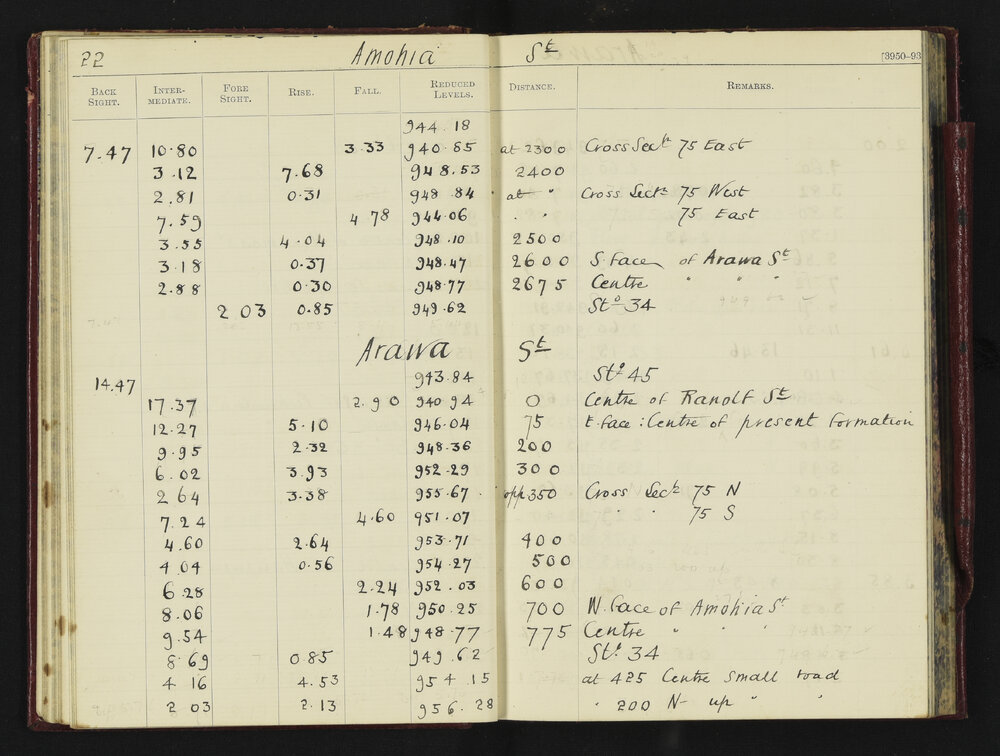 22 Amohia St [3950-93
BACK SIGHT. INTER-MEDIATE. FORE SIGHT. RISE. FALL. REDUCED LEVELS. DISTANCE. REMARKS.
944.18
7.47 10.80 3.33 940.85 at 2300 Cross Sectn 75 East
3.12 7.68 948.53 2400
2.81 0.31 948.84 at " Cross Sectn 75 West
7.59 4 78 944.06 " " 75 East
3.55 4.04 948.10 2500
3.18 0.37 948.47 2600 S. face of Arawa St
2.88 0.30 948.77 2675 Centre " " "
2 03 0.85 949.62 Stn 34
Arawa St
14.47 943.84 Stn 45
17.37 2.90 940 94 0 Centre of Ranolf St
12.27 5.10 946.04 75 E. face : Centre of present formation
9.95 2.32 948.36 200
6.02 3.93 952.29 300
2 64 3.38 955.67 opp 350 Cross Sectn 75 N
7.24 4.60 951.07 " " 75 S
4.60 2.64 953.71 400
4 04 0.56 954.27 500
6.28 2.24 952.03 600
8.06 1.78 950.25 700 W. face of Amohia St
9.54 1.48 948.77 775 Centre " " "
8.69 0.85 949.62 Stn 34
4 16 4.53 954 15 at 425 Centre small road
2 03 2.13 956.28 " 200 N up " "